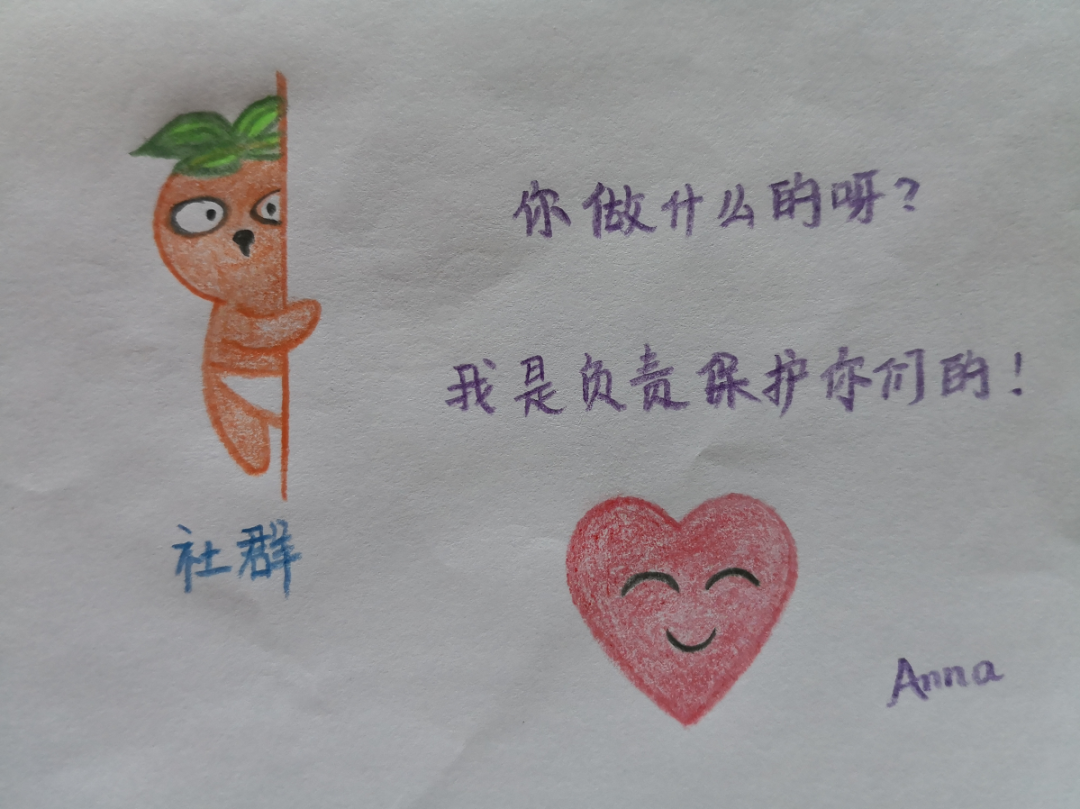 你做什么的呀？
我是负责保护你们的！
社群
Anna